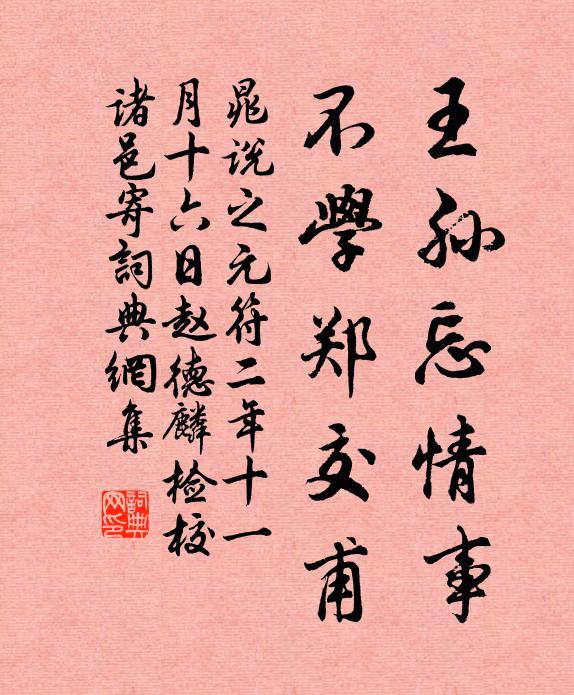 王孙忘情事
不學郑交甫
晁说之元符二年十一
月十六日赵德麟检校
诸邑寄詞典網集
詞典网印